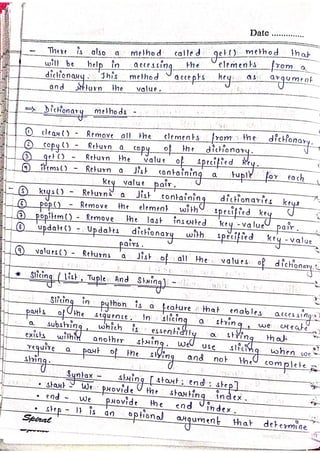 Date ..............
- There is also a method called get() method that
will be help in accessing the elements from a
dictionary. This method accepts key as argument
and return the value.
=> Dictionary methods -
① clear() - Remove all the elements from the dictionary.
② copy() - Return a copy of the dictionary.
③ get() - Return the value of specified key.
④ items() - Return a list containing a tuple for each
key value pair.
⑤ keys() - Returns a list containing dictionaries keys
⑥ pop() - Remove the element with specified key
⑦ popitem() - Remove the last insuted key-value pair.
⑧ update() - Updates dictionary with specified key-value
pairs.
⑨ values() - Returns a list of all the values of dictionary.
* Slicing (List, Tuple And String) -
Slicing in python is a feature that enables accessing
parts of the sequense. In slicing a string, we create
a substring, which is essentially a string that
exists within another string. We use slicing when we
require a part of the string and not the complete
string.
Syntax - string [start : end : step]
• start - We provide the starting index.
• end - We provide the end index.
• step - It is an optional argument that determine
Spiral